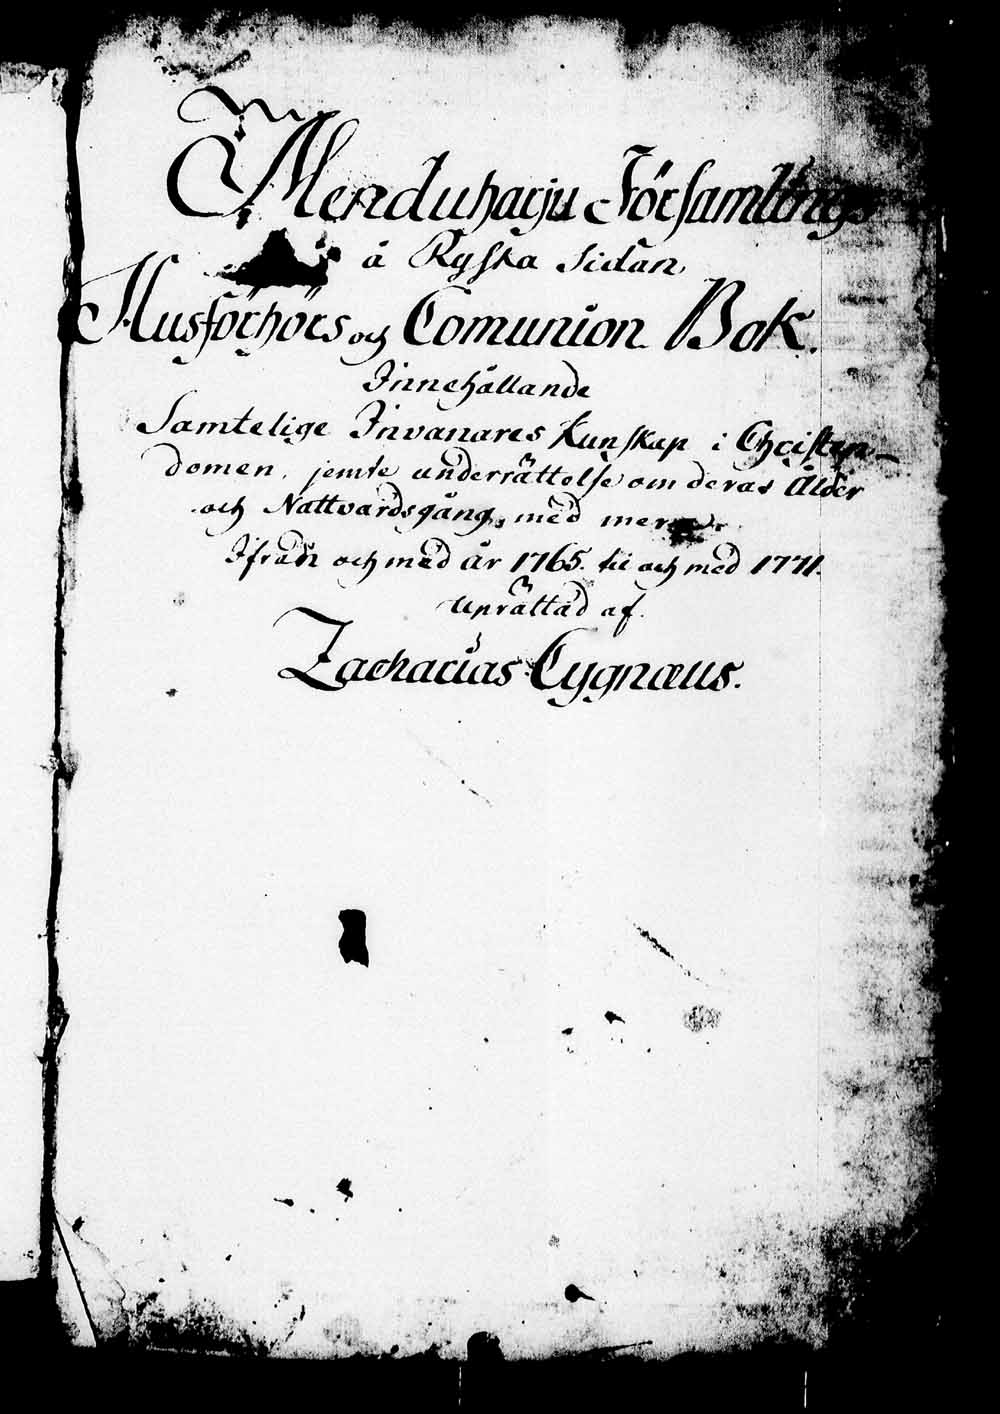 Menduharju Församlings
å Ryska Sidan,
Husförhörs och Comunion Bok.
Innehållande
Samtelige Invånares Kunskap i Christen-
domen, jemte underrättelse om deras Ålder
och Nattvardsgång, med mera.
Ifrån och med år 1765. til och med 1771.
Uprättad af.
Zacharias Cygnæus.